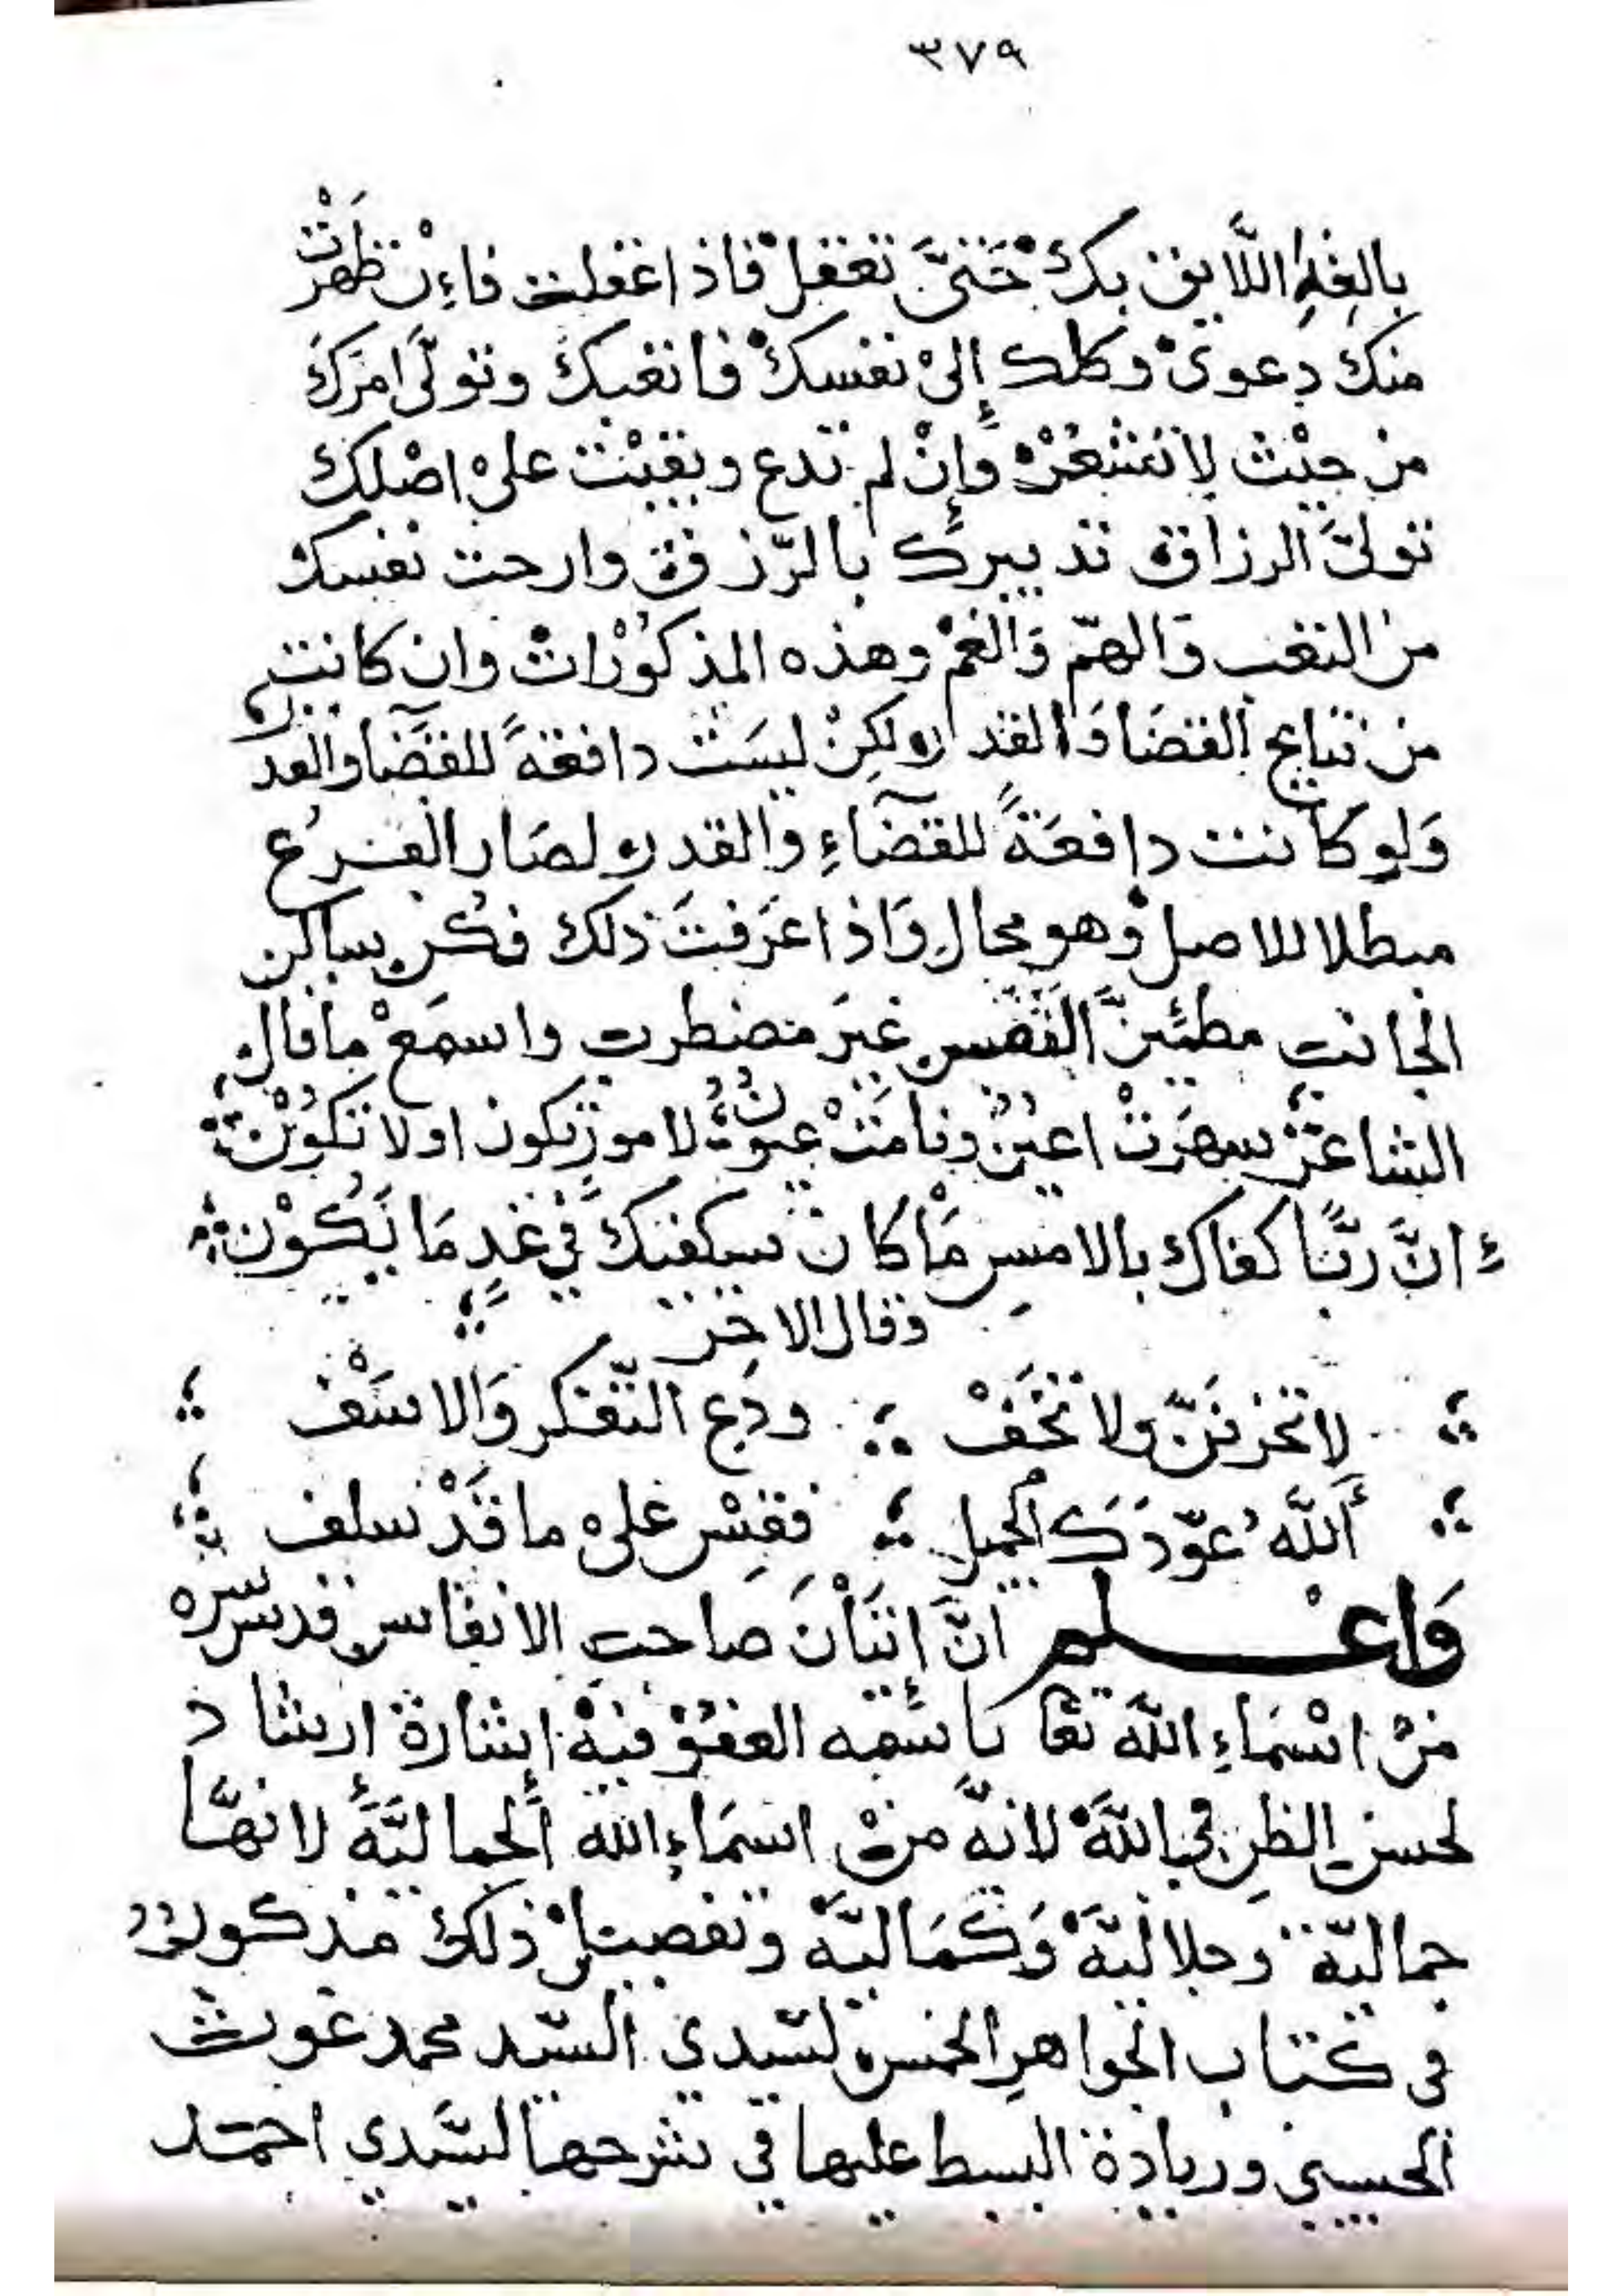 ٣٧٩
بالغِلِّ اللَّايق بكْ حَتىَّ تغفلْ فاذاغفلت فاءِنْ ظَهَرَتْ
منك دعوىْ وكلك إلىْ نفسكْ فاتعبك وتولَّى امرَكَ
من حيْث لاتَشْعُرْ وَإِنْ لم تدع وبقيْت علىْ اصْلك
تولىَّ الرزاق تدبيرك بالرّزق وارحت نفسك
من التعب وَالهمّ وَالغمْ وهذه المذكوْرْات وان كانت
من نتايج القضَا وَالقدر ولكِنْ ليسَتْ دافعةً للقضَآ والقدر
وَلو كانت دافعَةً للقضَآءِ والقدر ولصَار الفرْع
مبطلا للاصلْ وهو محال وَاذا عَرَفتَ ذلك فكُن ساكن
الجانب مطئنَّ النَفَس غيرَ مضطرب واسمَعْ ماقال
الشاعرْ سهرَتْ اعينٌ ونامَتْ عيونُ لامور تكون اولا تكُوْن
انَّ ربًّا كفاك بالامسِ مَاكان سيكفيك في غدٍ مَا يَكُوْن
وقال الاخر
لاتحزنَنّ ولا تخَفْ ودَع التّفكر وَالاسَفْ
أَللَّهُ عوّدَكَ الجميل فقِسْ علىْ ما قَدْ سلف
وَاعْلم انَّ إِتيَاْنَ صاحب الانفاس قدس سره
منْ اسْمَاءِ اللَّه تعا باسْمِه العفوّ فيهْ إشارة إرشاد
لحسن الظن في اللَّهْ لانّه منْ اسمَاءِ الله ألجماليَّةَ لانهَّا
جماليّة وجلاليّةْ وَكَمَاليّة وتفصيلْ ذلك مذكورٌ
فى كتاب الجواهرِ الخمس لسّيدي السيّد محمد غوث
الحسيني وزيادة البسط عليها في شرحها لسَّيدي احمَد